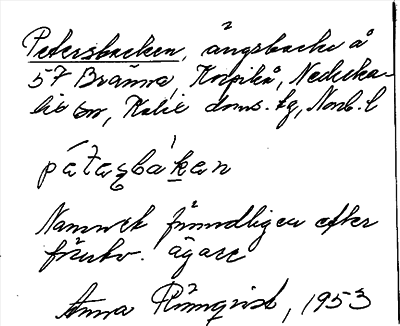 Petersbacken, ängsbacke å
57 Bränna, Korpikå, Nederka-
lix sn, Kalix doms. tg, Norrb. l
pétasbákan
Namnet förmodligen efter
förutv. ägare
Anna Rönnqvist, 1953